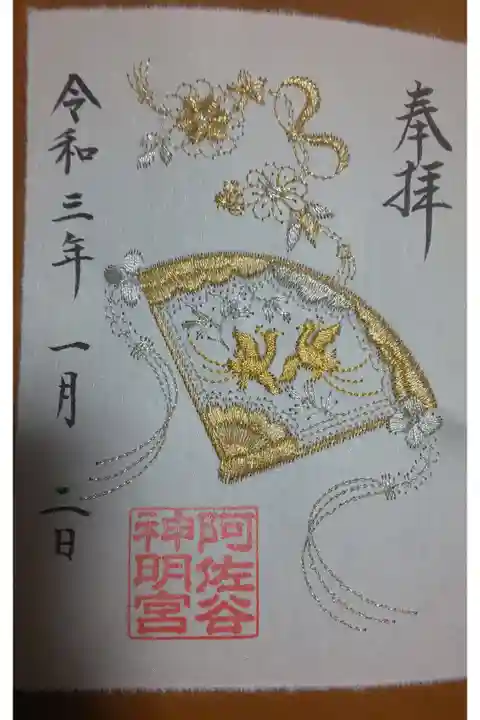 奉拝
阿佐谷
神明宮
令和三年 一月 二日